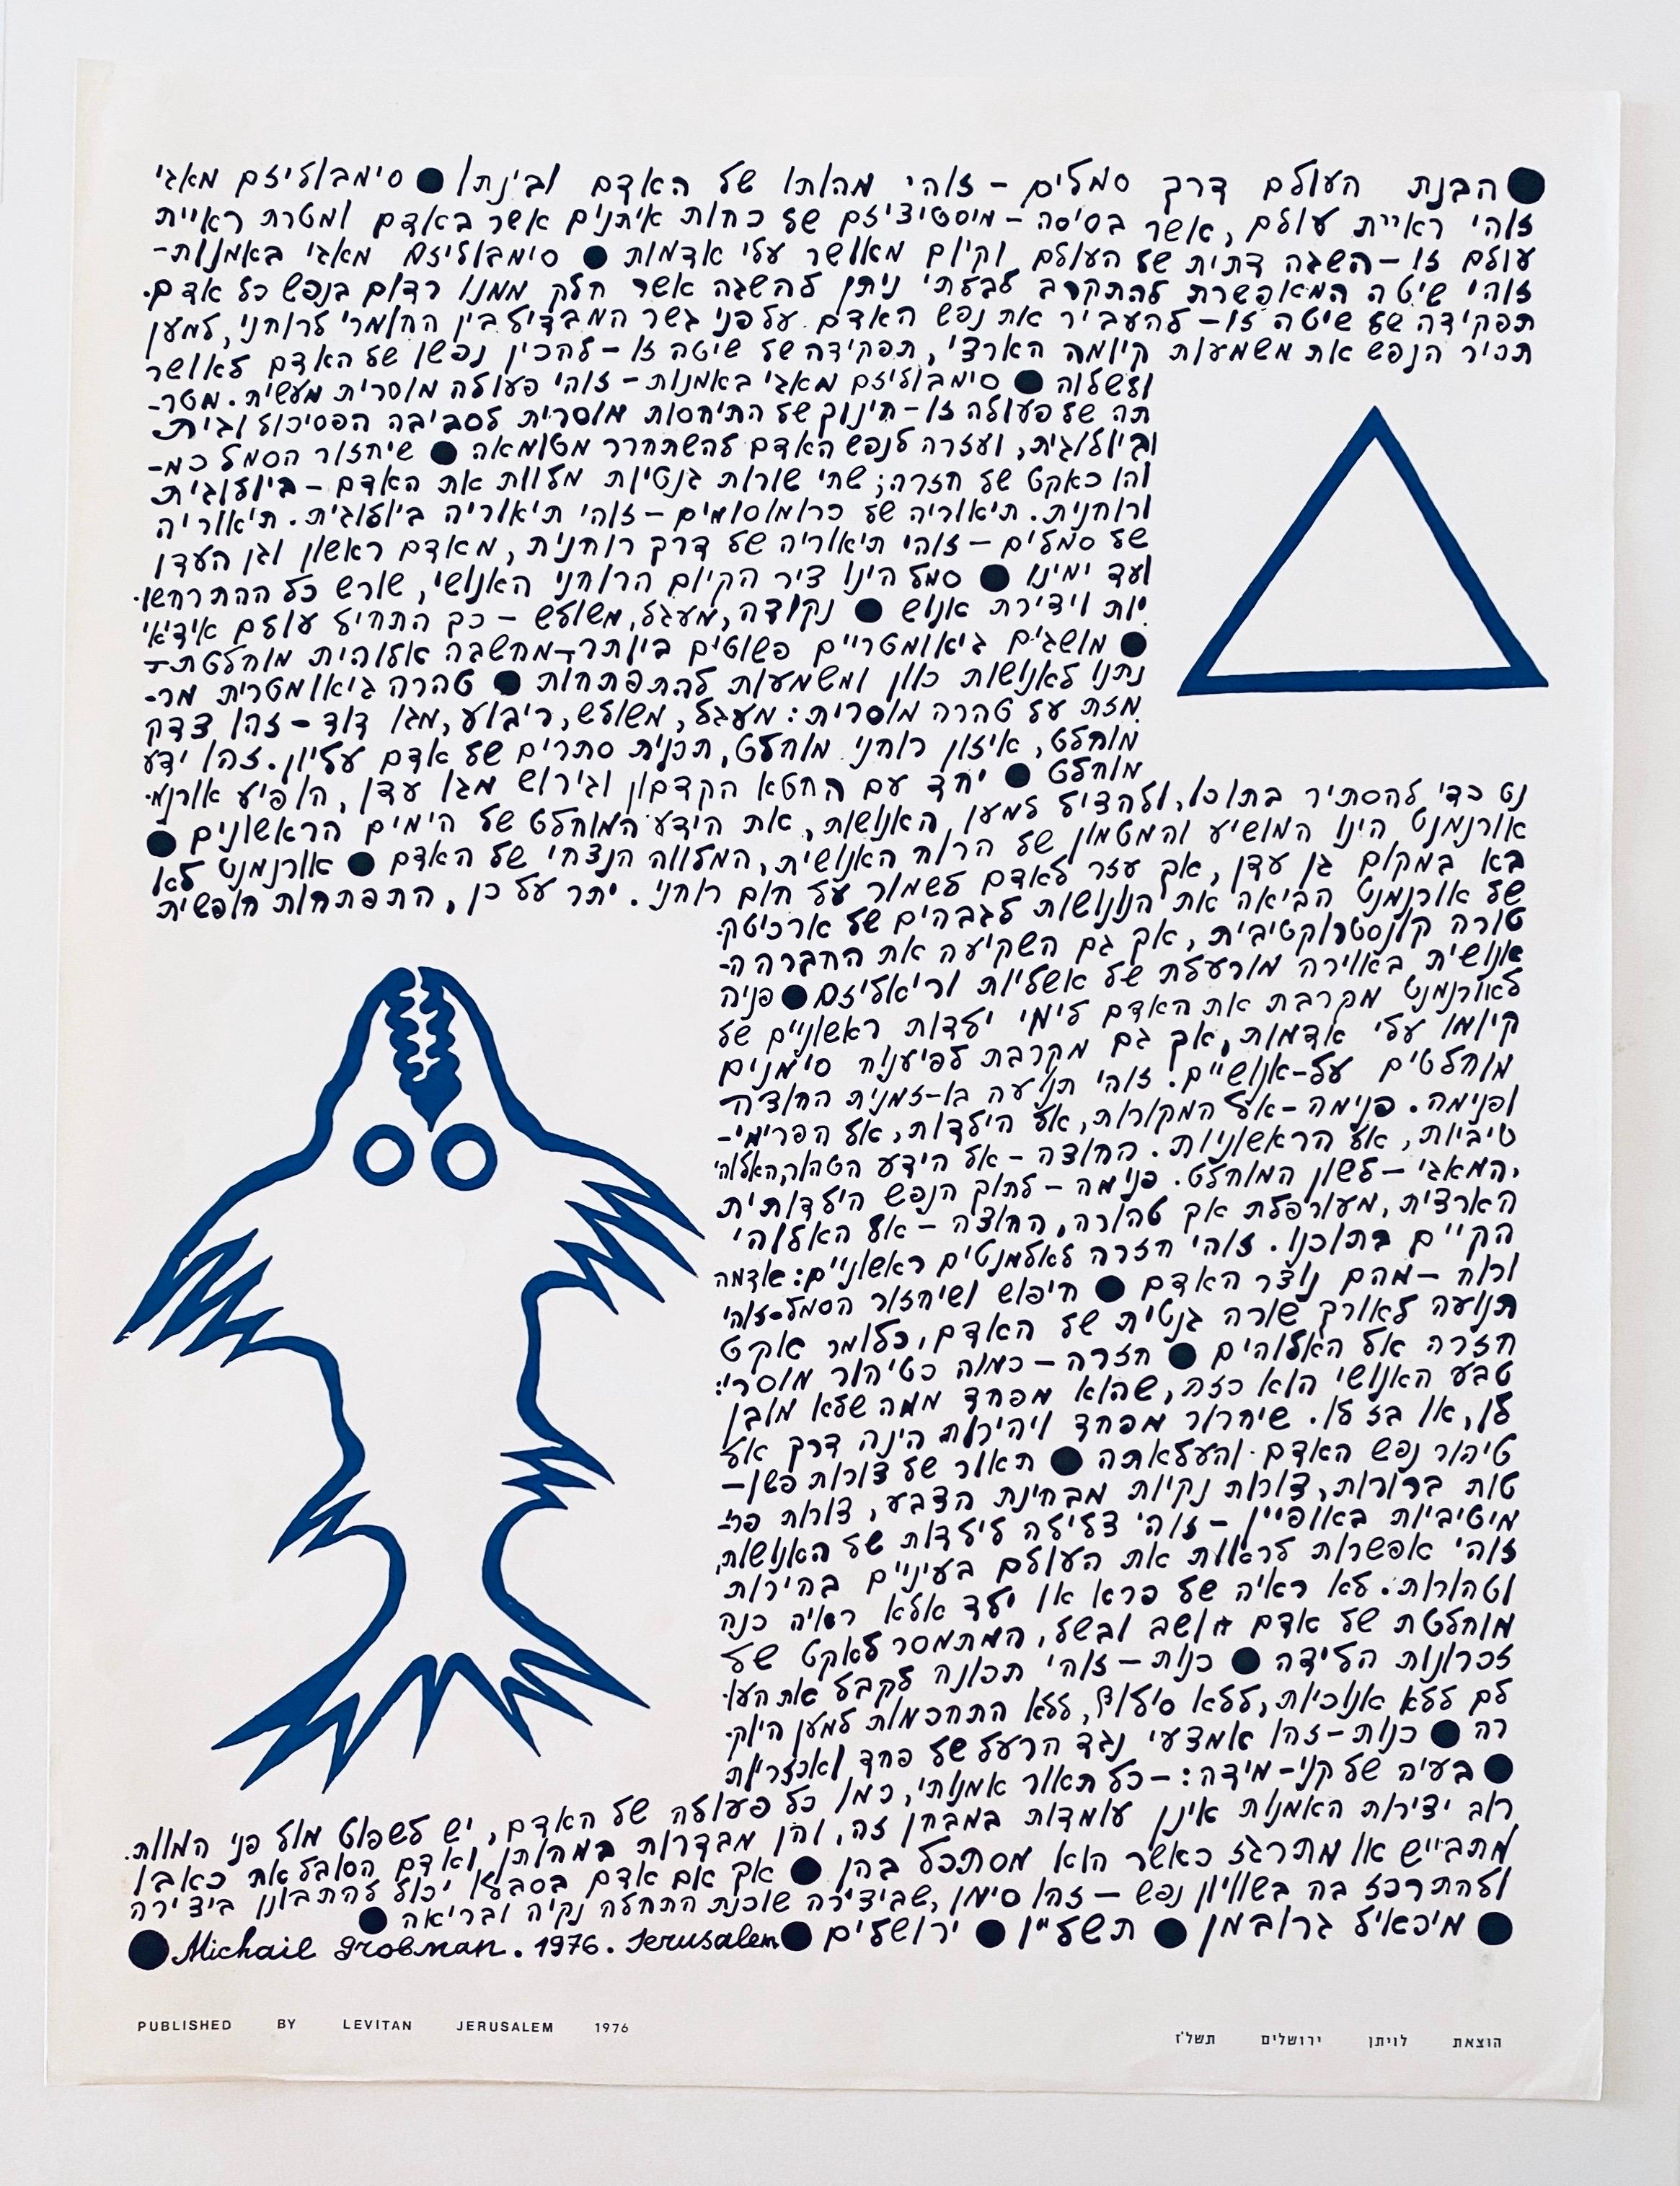 ●הבנת העולם דרך סמלים – זוהי מהותו של האדם ובינתו ● סימבוליזם מאגי
זוהי ראיית עולם, אשר בסיסה – מיסטיציזם של כחות איתנים אשר באדם ומטרת ראיית
עולם זו – השגה דתית של העולם וקיום מאושר עלי אדמות ● סימבוליזם מאגי באמנות –
זוהי שיטה המאפשרת להתקרב לבלתי ניתן להשגה אשר חלק ממנו רדום בנפש כל אדם.
תפקידה של שיטה זו – להעביר את נפש האדם על פני גשר המבדיל בין החומרי לרוחני, למען
תכיר הנפש את משמעות קיומה הארצי, תפקידה של שיטה זו – להכין נפשו של האדם לאושר
ולשלוה ● סימבוליזם מאגי באמנות – זוהי פעולה מוסרית מעשית. מטר-
תה של פעולה זו – חינוך של התיחסות מוסרית לסביבה הפסיכולוגית
וביולוגית, ועזרה לנפש האדם להשתחרר מטומאה ● שיחזור הסמל כמ-
והו כאקט של חזרה; שתי שורות גנטיות מלוות את האדם – ביולוגית
ורוחנית. תיאוריה של כרומוסומים – זוהי תיאוריה ביולוגית. תיאוריה
של סמלים – זוהי תיאוריה של דרך רוחנית, מאדם ראשון וגן העדן
ועד ימינו ● סמל הינו ציר הקיום הרוחני האנושי, שורש כל ההתרחשו-
יות ויצירת אנוש ● נקודה, מעגל, משולש – כך התחיל עולם אידיאי
● מושגים גיאומטריים פשוטים ביותר – מחשבה אלוהית מוחלטת –
נתנו לאנושות כוון ומשמעות להתפתחות ● טהרה גיאומטרית מר-
מזת על טהרה מוסרית: מעגל, משולש, ריבוע, מגן דוד – זהו צדק
מוחלט, איזון רוחני מוחלט, תכנית סתרים של אדם עליון. זהו ידע
מוחלט ● יחד עם החטא הקדמון וגירוש מגן עדן, הופיע אורנמ-
נט כדי להסתיר בתוכו, ולהציל למען האנושות, את הידע המוחלט של הימים הראשונים ●
אורנמנט הינו המושיע והמטמון של הרוח האנושית, המלווה הנצחי של האדם ● אורנמנט לא
בא במקום גן עדן, אך עזר לאדם לשמור על חום רוחני. יתר על כן, התפתחות חופשית
של אורנמנט הביאה את האנושות לגבהים של ארכיטק-
טורה קונסטרוקטיבית, אך גם השקיעה את החברה ה-
אנושית באוירה מורעלת של אשליות וריאליזם ● פניה
לאורנמנט מקרבת את האדם לימי ילדות ראשוניים של
קיומו עלי אדמות, אך גם מקרבת לפיענוח סימנים
מוחלטים על-אנושיים. זוהי תנועה בו-זמנית החוצה
ופנימה. פנימה – אל המקורות, אל הילדות, אל הפרימי-
טיביות, אל הראשוניות. החוצה – אל הידע הטהור, האלוהי
,המאגי – לשון המוחלט. פנימה – לתוך הנפש הילדותית
הארצית, מעורפלת אך טהורה, החוצה – אל האלוהי
הקיים בתוכנו. זוהי חזרה לאלמנטים ראשוניים: אדמה
ורוח – מהם נוצר האדם ● חיפוש ושיחזור הסמל – זוהי
תנועה לאורך שורה גנטית של האדם, כלומר אקט
חזרה אל האלוהים ● חזרה – כמוה כטיהור מוסרי:
טבע האנושי הוא כזה, שהוא מפחד ממה שלא מובן
לו, או בז לו. שיחרור מפחד ויהירות הינה דרך אל
טיהור נפש האדם והעלאתה ● תאור של צורות פשו-
טות ברורות, צורות נקיות מבחינת הצבע, צורות פרי-
מיטיביות באופיין – זוהי צלילה לילדות של האנושות,
זוהי אפשרות לראות את העולם בעיניים בהירות
וטהורות. לא ראיה של פרא או ילד אלא ראיה כנה
מוחלטת של אדם חושב ובשל, המתמסר לאקט של
זכרונות הלידה ● כנות – זוהי תכונה לקבל את העו-
לם ללא אנוכיות, ללא סילוף, ללא התחכמות למען היוק-
רה ● כנות – זהו אמצעי נגד הרעל של פחד ואכזריות
● בעיה של קני-מידה: – כל תאור אמנותי, כמו כל פעולה של האדם, יש לשפוט מול פני המוות.
רוב יצירות האמנות אינן עומדות במבחן זה, והן מבדרות במהותן, ואדם הסובל את כאבו
מתבייש או מתרגז כאשר הוא מסתכל בהן ● אך אם אדם בסבלו יכול להתבונן ביצירה
ולהתרכז בה בשוויון נפש – זהו סימן, שביצירה שוכנת התחלה נקיה ובריאה ●
● מיכאיל גרובמן ● תשל"ו ● ירושלים ● Michail Grobman. 1976. Jerusalem ●
PUBLISHED BY LEVITAN JERUSALEM 1976
הוצאת לויתן ירושלים תשל'ז